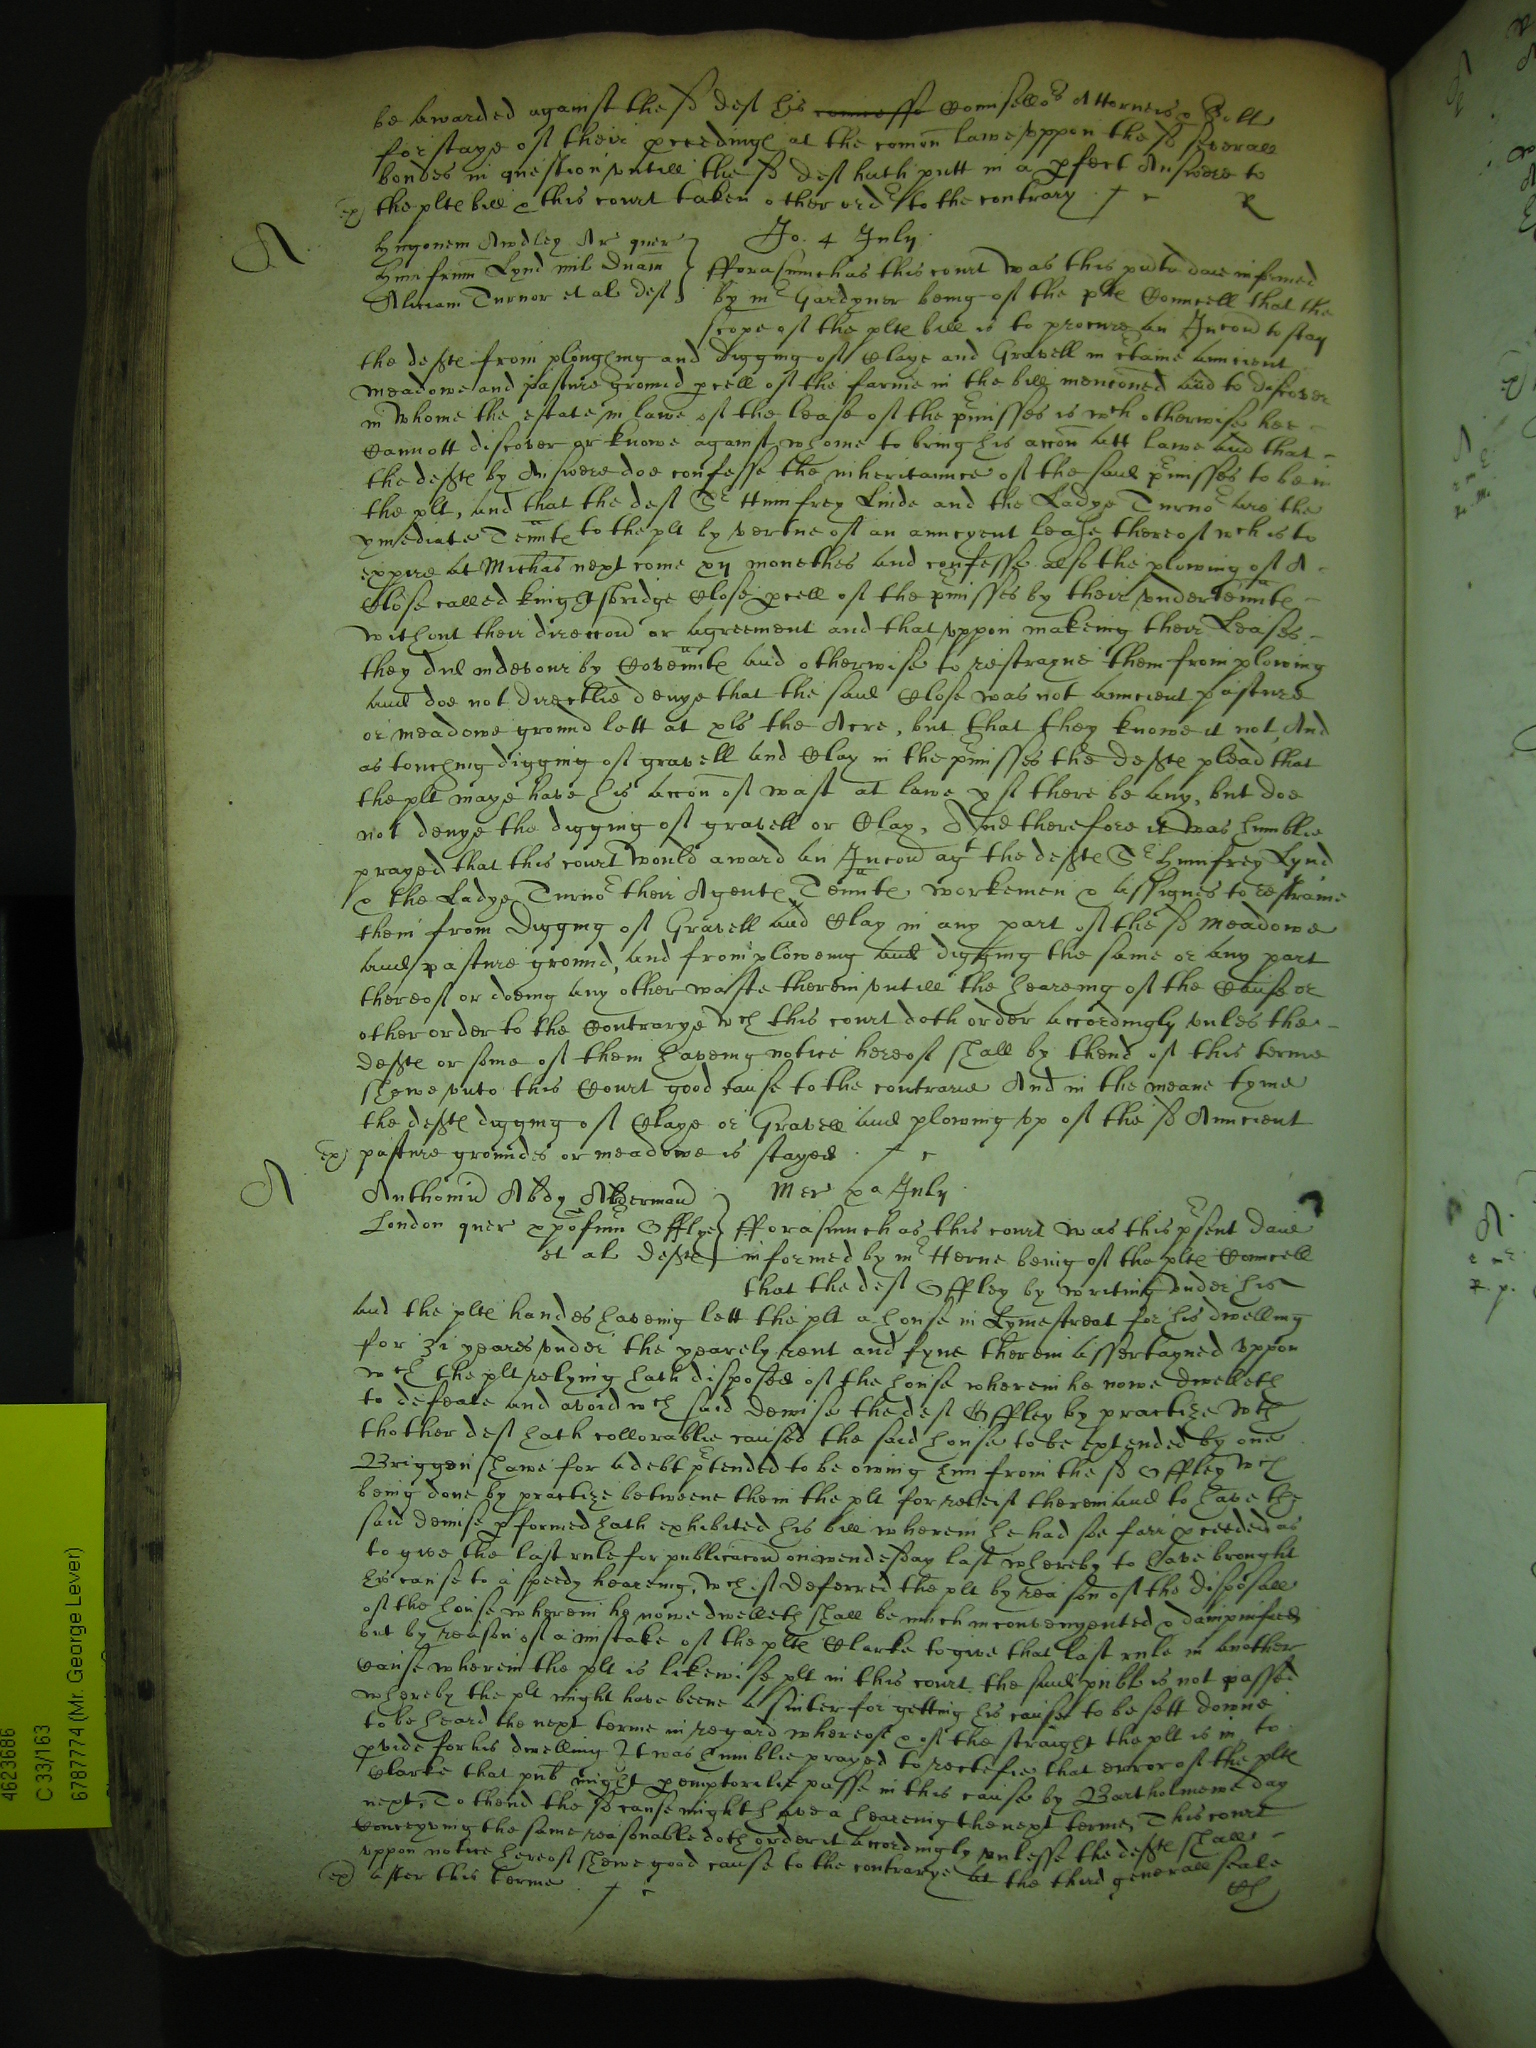 be awarded against the sd deft his counsellors Attorneis & Soll
for staye of their pceedings at the comon lawe uppon the sd severall
bondes in question untill the sd deft hath putt in a pfect Answere to
the plts bill & this court taken other order to the contrary
ex
R
A
Awdley Ar quer
Humfrum Lynd mil Dnam
Turnor et al deft
Jo. 4 July
fforasmuch as this court was this pnte daie infrmed
by mr Gardyner being of the plts Councell that the
scope of the plts bill is to procure an Inconc to stay
the defts from ploughing and Digging of Claye and Gravell in ctaine auncient
meadowe and pasture ground pcell of the farme in the bill mencioned and to discover
in whome the estate in lawe of the lease of the pmisses is wch otherwise hee
Cannott discover or knowe against whome to bring his accon att lawe and that
the defts by Answere doe confesse the inheritaunce of the said pmisses to be in
the plt, and that the deft Sr Humfrey Linde and the Ladye Turnor are the
ymediate Tennts to the plt by vertue of an auncyent lease thereof wch is to
expire at Michas next come xij monethes and confesse also the plowing of A
Close called knightsbridge Close pcell of the pmisses by their undertennts
without their direccon or agreement and that uppon makeing their Leases
they did indevour by Covennts and otherwise to restrayne them from plowing
and doe not directlie denye that the said Close was not auncient pasture
or meadowe ground lett at xls the Acre, but that they knowe it not, And
as touching digging of gravell and Clay in the pmisses the defts plead that
the plt maye have his accon of wast at lawe yf there be any, but doe
not denye the digging of gravell or Clay, And therefore it was humblie
prayed that this court would award an Inconc agt the defts Sr Humfrey Lynd
& the Ladye Turnor their Agents Tennts workemen & assignes to restraine
them from Digging of Gravell and Clay in any part of the sd meadowe
and pasture ground, and from ploweing and digging the same or any part
thereof or doeing any other waste therein untill the heareing of the Cause or
other order to the Contrarye wch this court doth order accordingly unles the
defts or some of them haveing notice hereof shall by thend of this terme
shewe unto this Court good cause to the contrarie And in the meane tyme
the defts digging of Claye or Gravell and plowing up of the sd Auncient
ex pasture groundes or meadowe is stayed
A
Anthoniu Abdy Aldermanu
London quer xpofrum Offlye
et al defts
Mer July
fforasmuch as this court was this psent daie
informed by mr Herne being of the plts Councell
that the deft Offley by writing under his
and the plts handes haveing lett the plt a house in Lymestreat for his dwelling
for 31 yeares under the yearely rent and fyne therein assertayned uppon
wch the plt relying hath disposed of the house wherein he nowe dwelleth
to defeate and avoid wch said demise the deft Offley by practize wth
thother deft hath collorablie caused the said house to be extended by one
Briggenshawe for a debt ptended to be owing him from the sd Offley wch
being done by practize betweene them the plt for releif therein and to have the
said demise pformed hath exhibited his bill wherein he had soe farr pceeded as
to give the last rule for publicacon on wendesday last whereby to have brought
his cause to a speedy heareing, wch if deferred the plt by reason of the disposall
of the house wherein he nowe dwelleth shall be much inconvenyented & dampnified
but by reason of a mistake of the plts Clarke to give that last rule in another
cause wherein the plt is likewise plt in this court the said publ is not passed
whereby the plt might have beene a suiter for getting his cause to be sett downe
to be heard the next terme in regard whereof & of the straight the plt is in to
pvide for his dwelling It was humblie prayed to rectefie that error of the plts
Clarke that pub might pemptorilie passe in this cause by Bartholmewe day
next, To thend the sd cause might have a heareing the next terme, This court
conceyving the same reasonable doth order it accordingly unlesse the defts shall
uppon notice hereof shewe good cause to the contrarye at the third generall seale
ex after this terme
4623686
C 33/163
6787774 (Mr. George Lever)